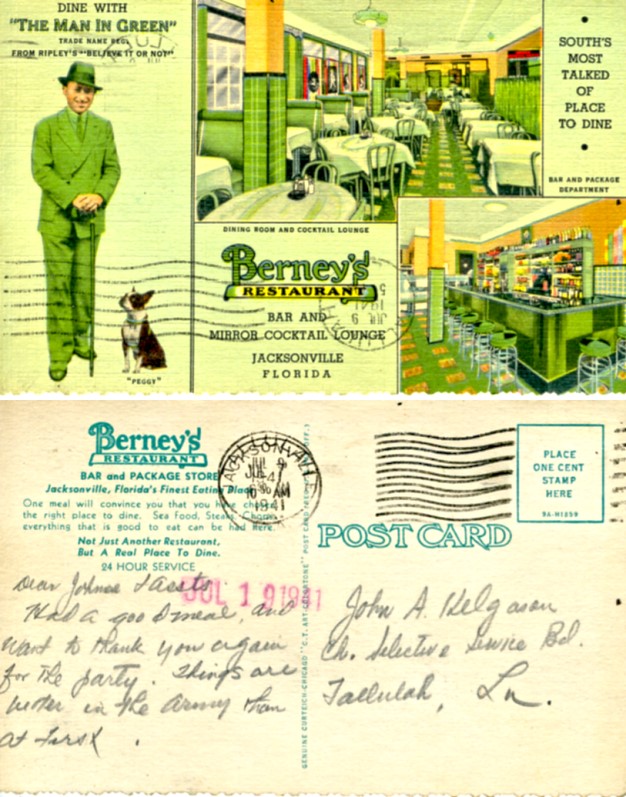 DINE WITH
"THE MAN IN GREEN"
TRADE NAME REG.
FROM RIPLEY'S "BELIEVE IT OR NOT"
SOUTH'S
MOST
TALKED
OF
PLACE
TO DINE
BAR AND PACKAGE
DEPARTMENT
DINING ROOM AND COCKTAIL LOUNGE
Berney's
RESTAURANT
BAR AND
MIRROR COCKTAIL LOUNGE
JACKSONVILLE
FLORIDA
"PEGGY"
JUL 9
1941
Berney's
RESTAURANT
BAR and PACKAGE STORE
Jacksonville, Florida's Finest Eating Place
One meal will convince you that you have chosen
the right place to dine. Sea Food, Steaks, Chops,
everything that is good to eat can be had here.
Not Just Another Restaurant,
But A Real Place To Dine.
24 HOUR SERVICE
JACKSONVILLE
JUL 9
AM
1941
PLACE
ONE CENT
STAMP
HERE
9A-H1859
POST CARD
GENUINE CURTEICH-CHICAGO "C.T. ART-COLORTONE" POST CARD
JUL 19 1941
Dear
Had a good meal, and
want to thank you again
for the party. Things are
better in the Army than
at first.
John A. Helgason
Ch. Selective Service Bd.
Tallulah, La.